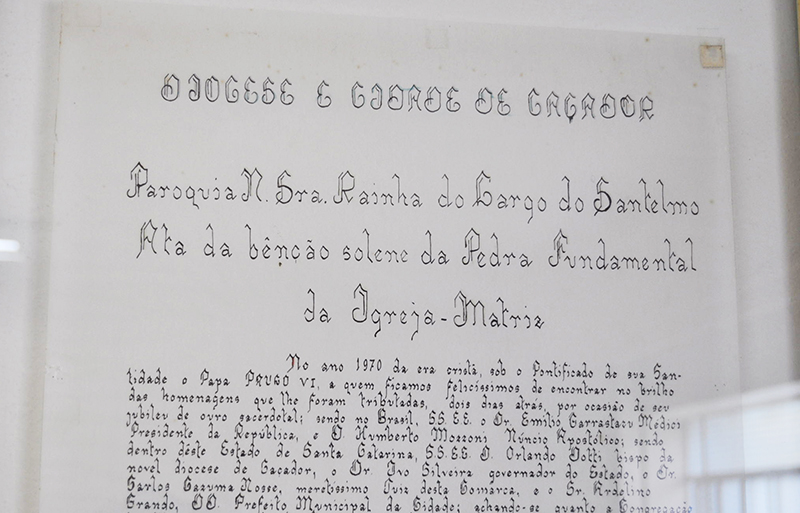 DIOCESE E CIDADE DE CAÇADOR
Paroquia N. Sra. Rainha do Largo do Santelmo
Ata da bênção solene da Pedra Fundamental
da Igreja-Matriz
No ano 1970 da era cristã, sob o Pontificado de sua San-
tidade o Papa PAULO VI, a quem ficamos felicíssimos de encontrar no brilho
das homenagens que lhe foram tributadas, dois dias atrás, por ocasião de seu
jubileu de ouro sacerdotal; sendo no Brasil, SS.EE. o Dr. Emílio Garrastacu Médici
Presidente da República, e D. Humberto Mozzoni Núncio Apostólico; sendo
dentro deste Estado de Santa Catarina, SS.EE. D. Orlando Dotti bispo da
novel diocese de Caçador, o Dr. Ivo Silveira governador do Estado, o Dr.
Carlos Nosse, meretissimo Juiz desta Comarca, e o Sr. Ardelino
Grando, DD. Prefeito Municipal da Cidade; achando-se quanto a Congregação